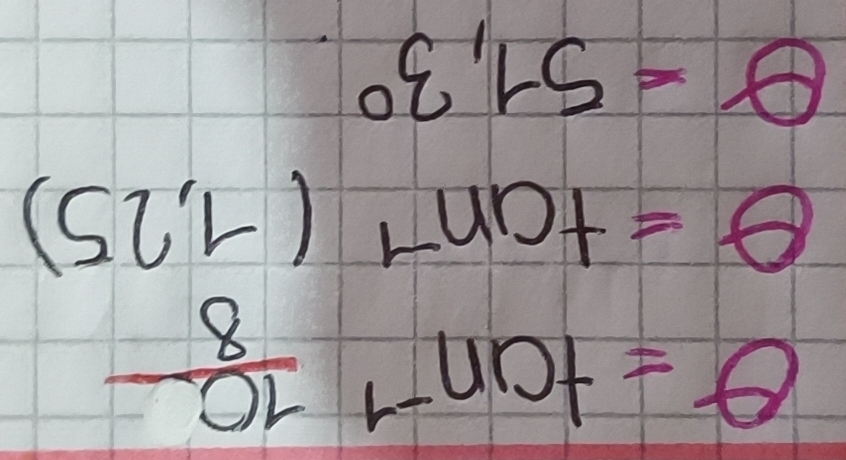 θ = tan⁻¹ 10/8
θ = tan⁻¹ (1,25)
θ = 51,3°